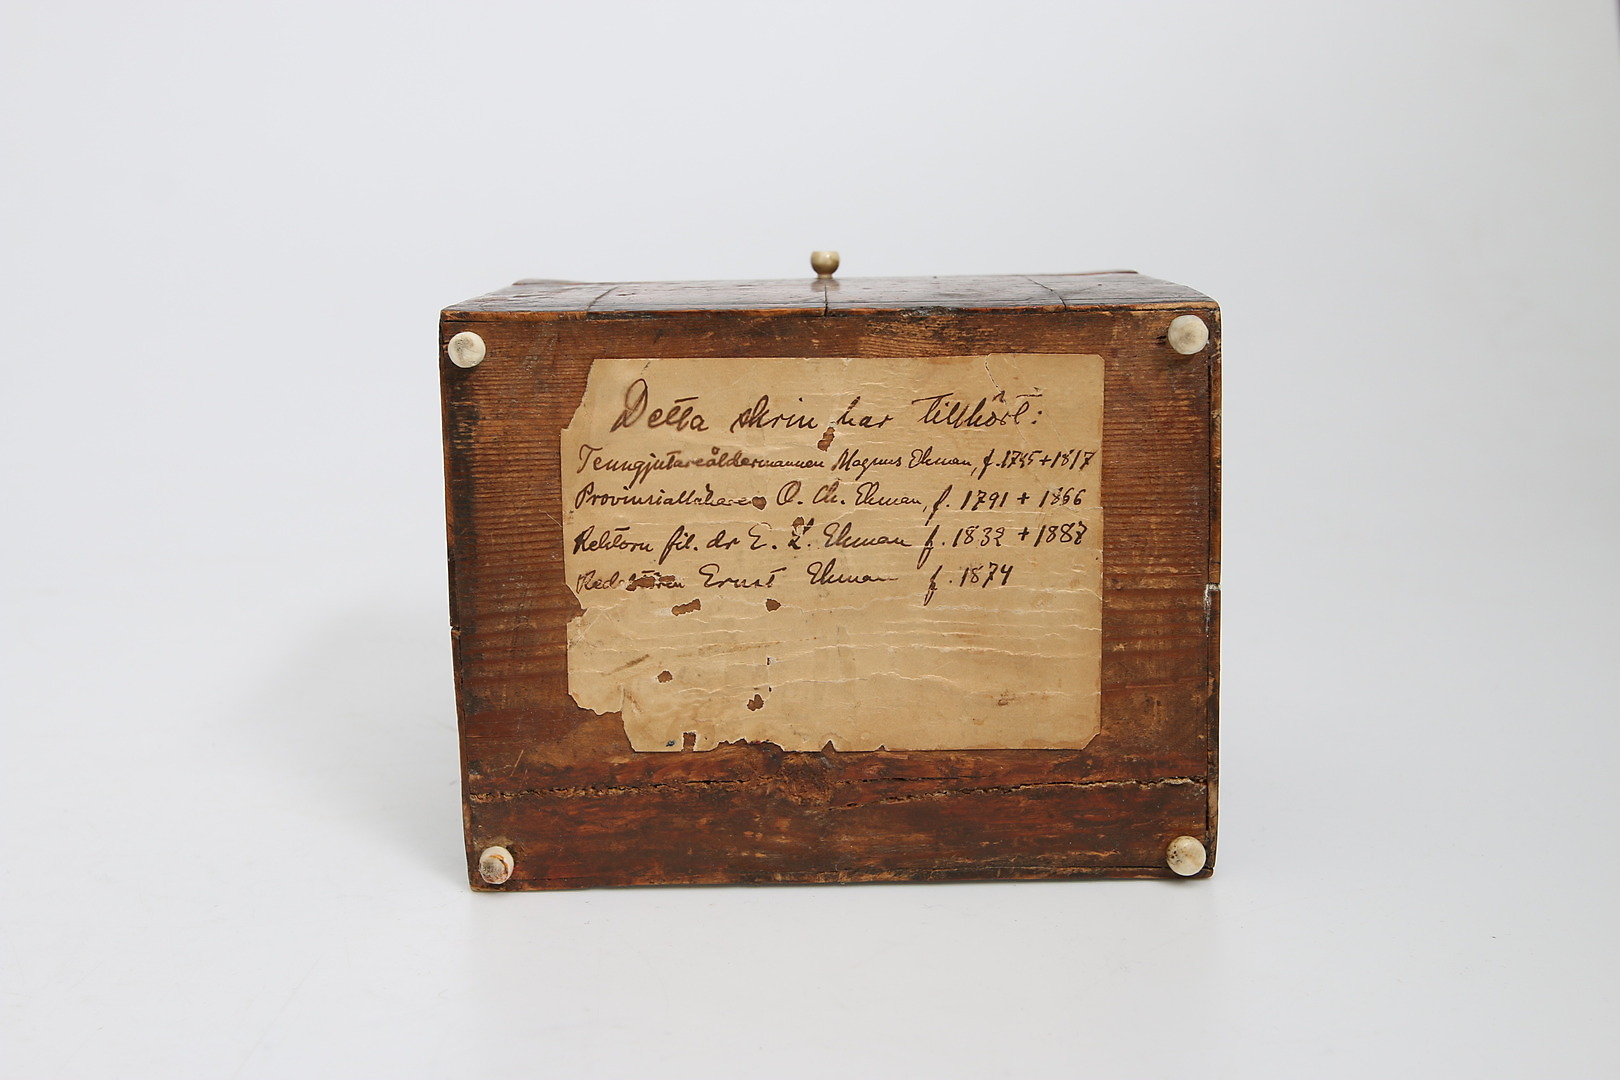 Detta skrin har tillhört:
Tenngjutareåldermannen Magnus Ekman, f. 1745 + 1817
Provinsialläkaren O. Ch. Ekman, f. 1791 + 1866
Rektorn fil. dr E. L. Ekman f. 1832 + 1887
Redaktören Ernst Ekman f. 1874